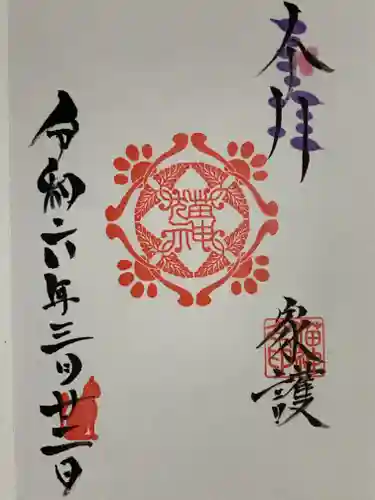 奉拝
家護
令和六年三月廿二日